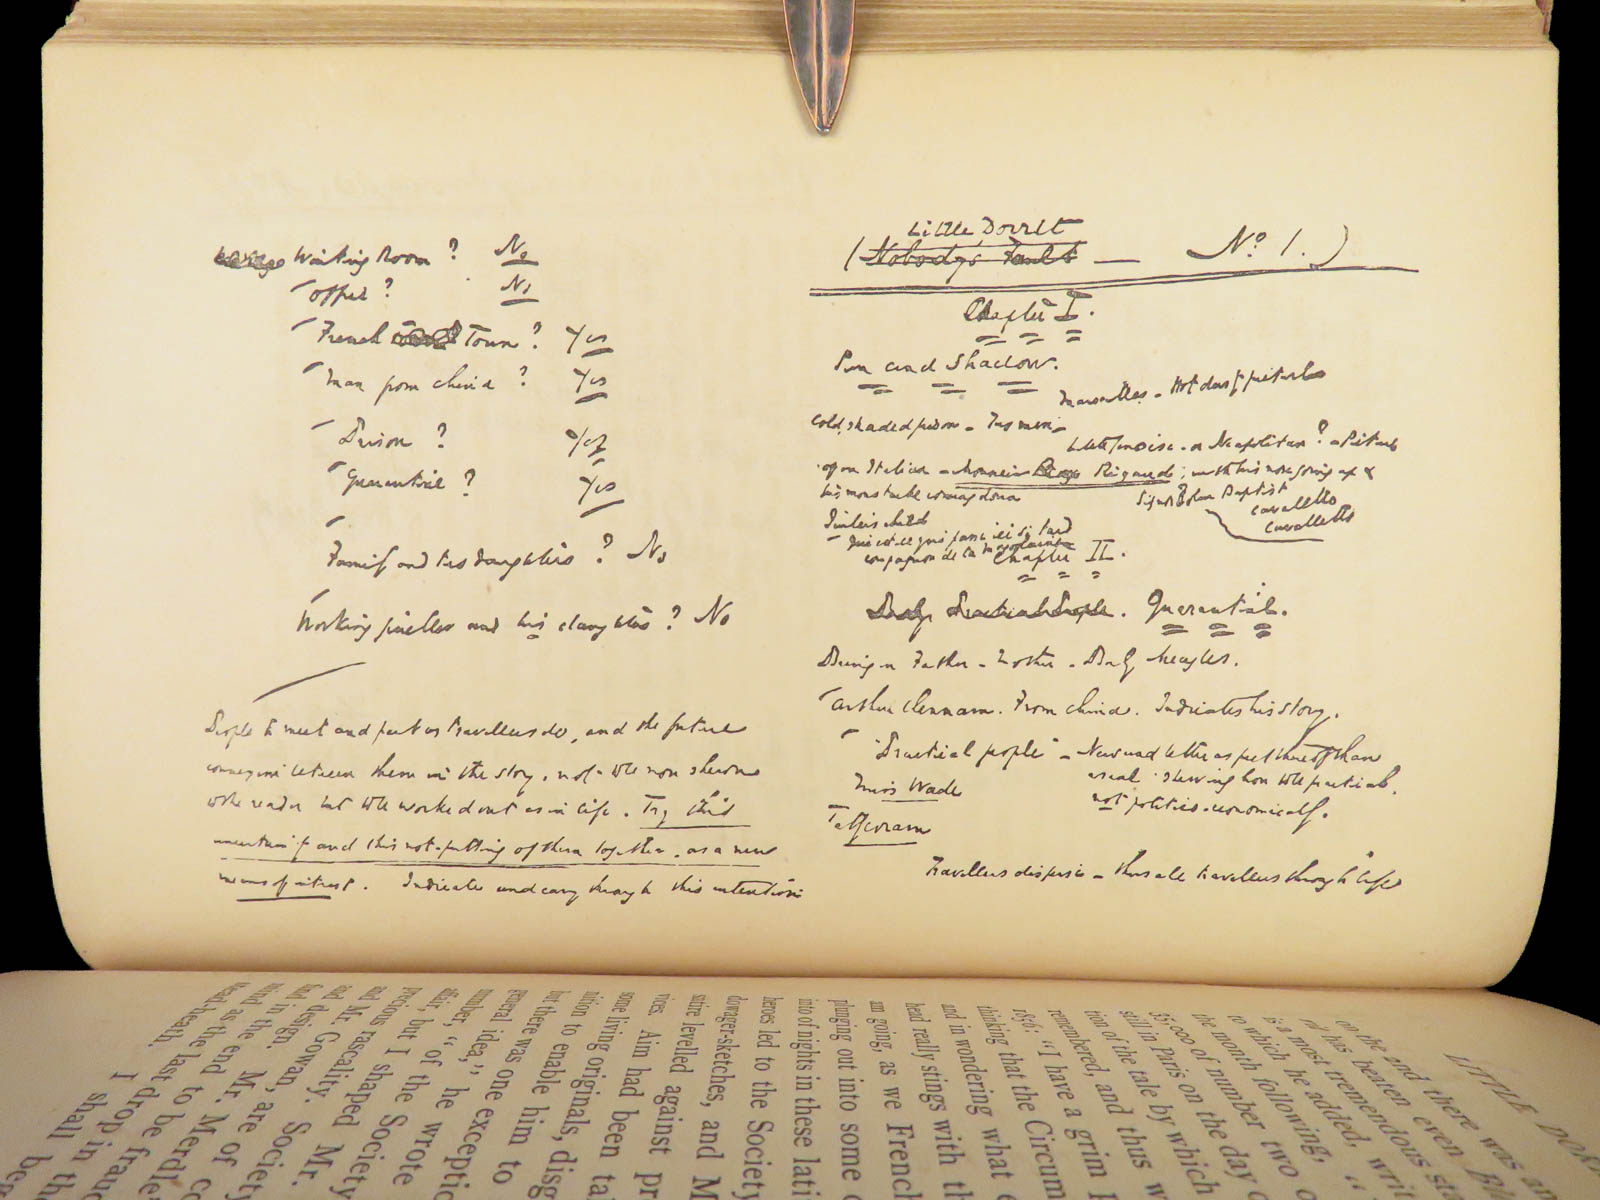 Waiting Room? No
Office? No
French Town? Yes
Man from China? Yes
Prison? Yes
Quarantine? Yes
Family and two daughters? No
Working jeweller and his daughters? No
People to meet and part as travellers do, and the future
connexion between them in the story, not to be now shewn
to the reader but to be worked out as in life. Try this
uncertainty and this not-putting of them together, as a new
means of interest. Indicate and carry through this intention
Little Dorrit
(Nobody's Fault — No. 1.)
Chapter I.
Sun and Shadow.
Marseilles - Hot day
Cold, shaded prison - Two men -
or Neapolitan? - Picture
of an Italian - Monsieur Rigaud; with his nose going up &
his moustache coming down
Signor John Baptist
Cavalletto
Cavalletto
Jailer's child
Qui est-ce qui passe ici si tard
compagnon de la Marjolaine
Chapter II.
Practical People. Quarantine.
Bring on Father - Mother - Baby Meagles.
Arthur Clennam. From China. Indicates his story.
"Practical people" - New and better aspect thereof than
usual - shewing how to be practical,
not politico-economically.
Miss Wade
Tattycoram
Travellers disperse - thus all travellers through life
LITTLE DOR
and there was
on the
has beaten even Bl
a most tremendous
to which he added, writ
the month following, "
35,000 of number two
still in Paris on the day
tion of the tale by which
remembered, and thus w
1856: "I have a grim
thinking that the Circum
and in wondering what
head really stings with th
am going, as we French
plunging out into some
into of nights in these lati
heroes led to the Society
dowager-sketches, and M
satire levelled against pr
vices. Aim had been ta
some living originals, disg
nition to enable him to
but there was one exceptic
general idea," he wrote
number, "of the Society
affair, but I shaped
precious rascality. Mr.
and Mr. Gowan, Society
and design. are of
find in the Mr. Mer
mind as the end to
dead-heath. last drop be frau
I shall